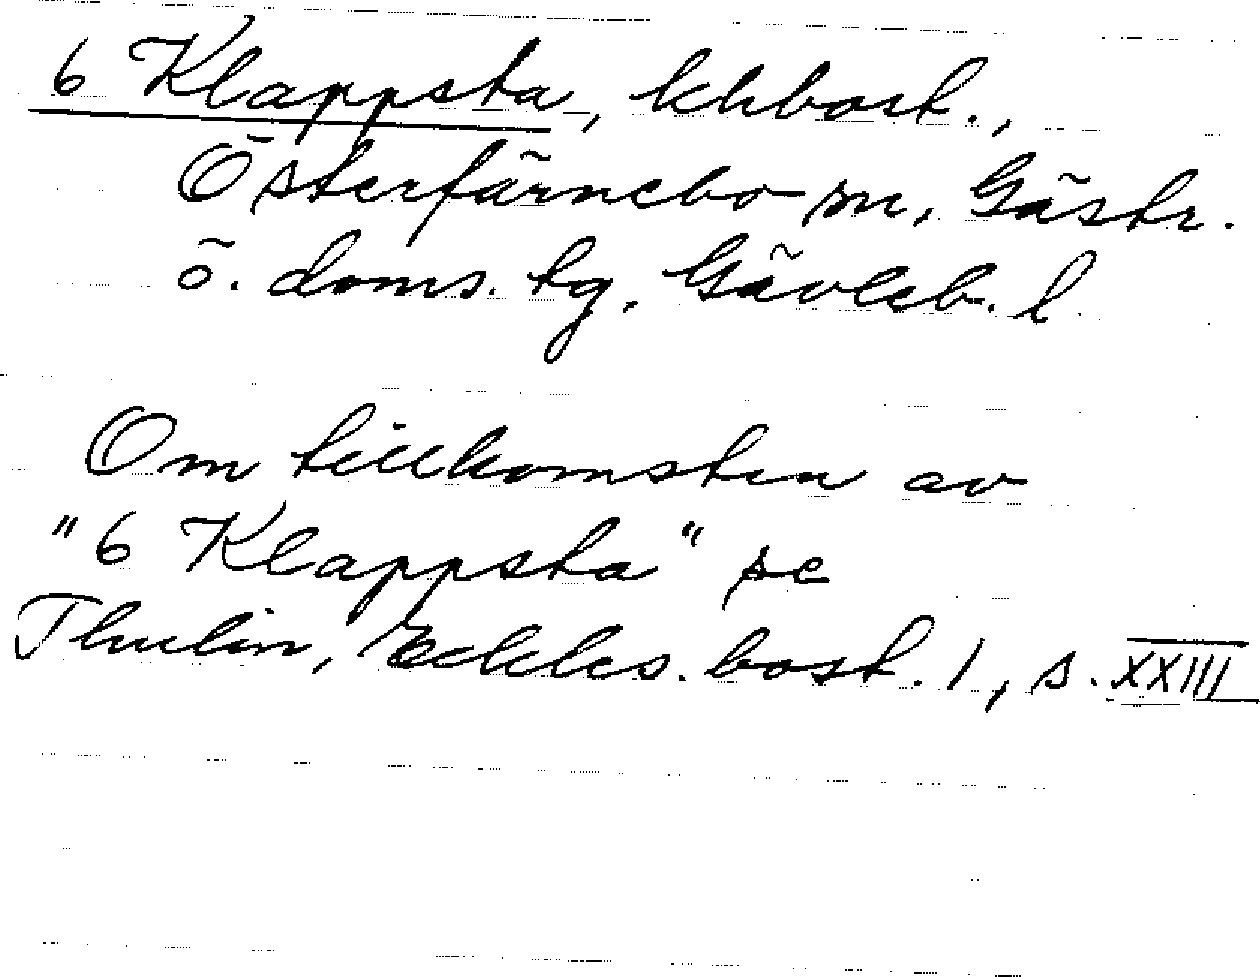 6 Klappsta, khbost.,
Österfärnebo sn, Gästr.
ö. doms. tg, Gävleb. l
Om tillkomsten av
"6 Klappsta" se
Thulin, Eckles. bost. 1, s. XXIII